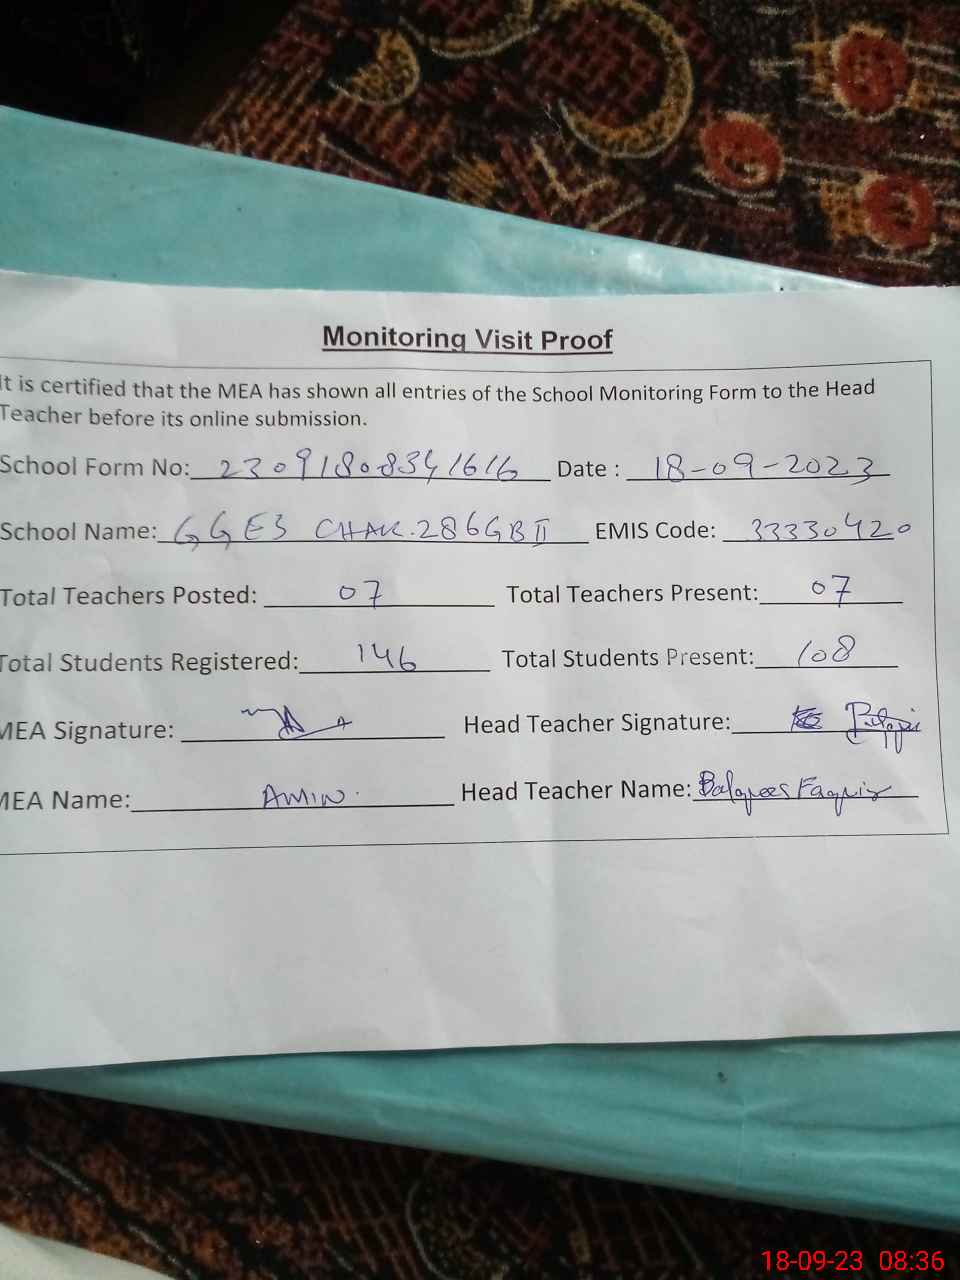 Monitoring Visit Proof
It is certified that the MEA has shown all entries of the School Monitoring Form to the Head
Teacher before its online submission.
School Form No: 23091808341616 Date : 18-09-2023
School Name: GGES CHAK.286GB II EMIS Code: 33330420
Total Teachers Posted: 07 Total Teachers Present: 07
Total Students Registered: 146 Total Students Present: 108
MEA Signature: Head Teacher Signature:
MEA Name: AMIN. Head Teacher Name: Balqees Faqir
18-09-23 08:36